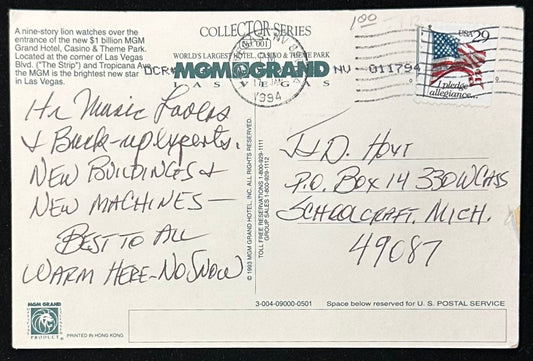 A nine-story lion watches over the
entrance of the new $1 billion MGM
Grand Hotel, Casino & Theme Park.
Located at the corner of Las Vegas
Blvd. ("The Strip") and Tropicana Ave.,
the MGM is the brightest new star
in Las Vegas.
COLLECTOR SERIES
No. 001
WORLD'S LARGEST HOTEL, CASINO & THEME PARK
MGM GRAND
LAS VEGAS
NV 011794
NV
1994
1.00
USA 29
I pledge
allegiance...
Hi Music Lovers
& Back-up experts.
NEW BUILDINGS &
NEW MACHINES —
BEST TO ALL
WARM HERE - NO SNOW
J D. HOYT
P.O. BOX 14 330 W CASS
SCHOOLCRAFT, MICH.
49087
© 1993 MGM GRAND HOTEL, INC. ALL RIGHTS RESERVED.
TOLL FREE RESERVATIONS 1-800-929-1111
GROUP SALES 1-800-929-1112
3-004-09000-0501
Space below reserved for U.S. POSTAL SERVICE
MGM GRAND
PRODUCT
PRINTED IN HONG KONG